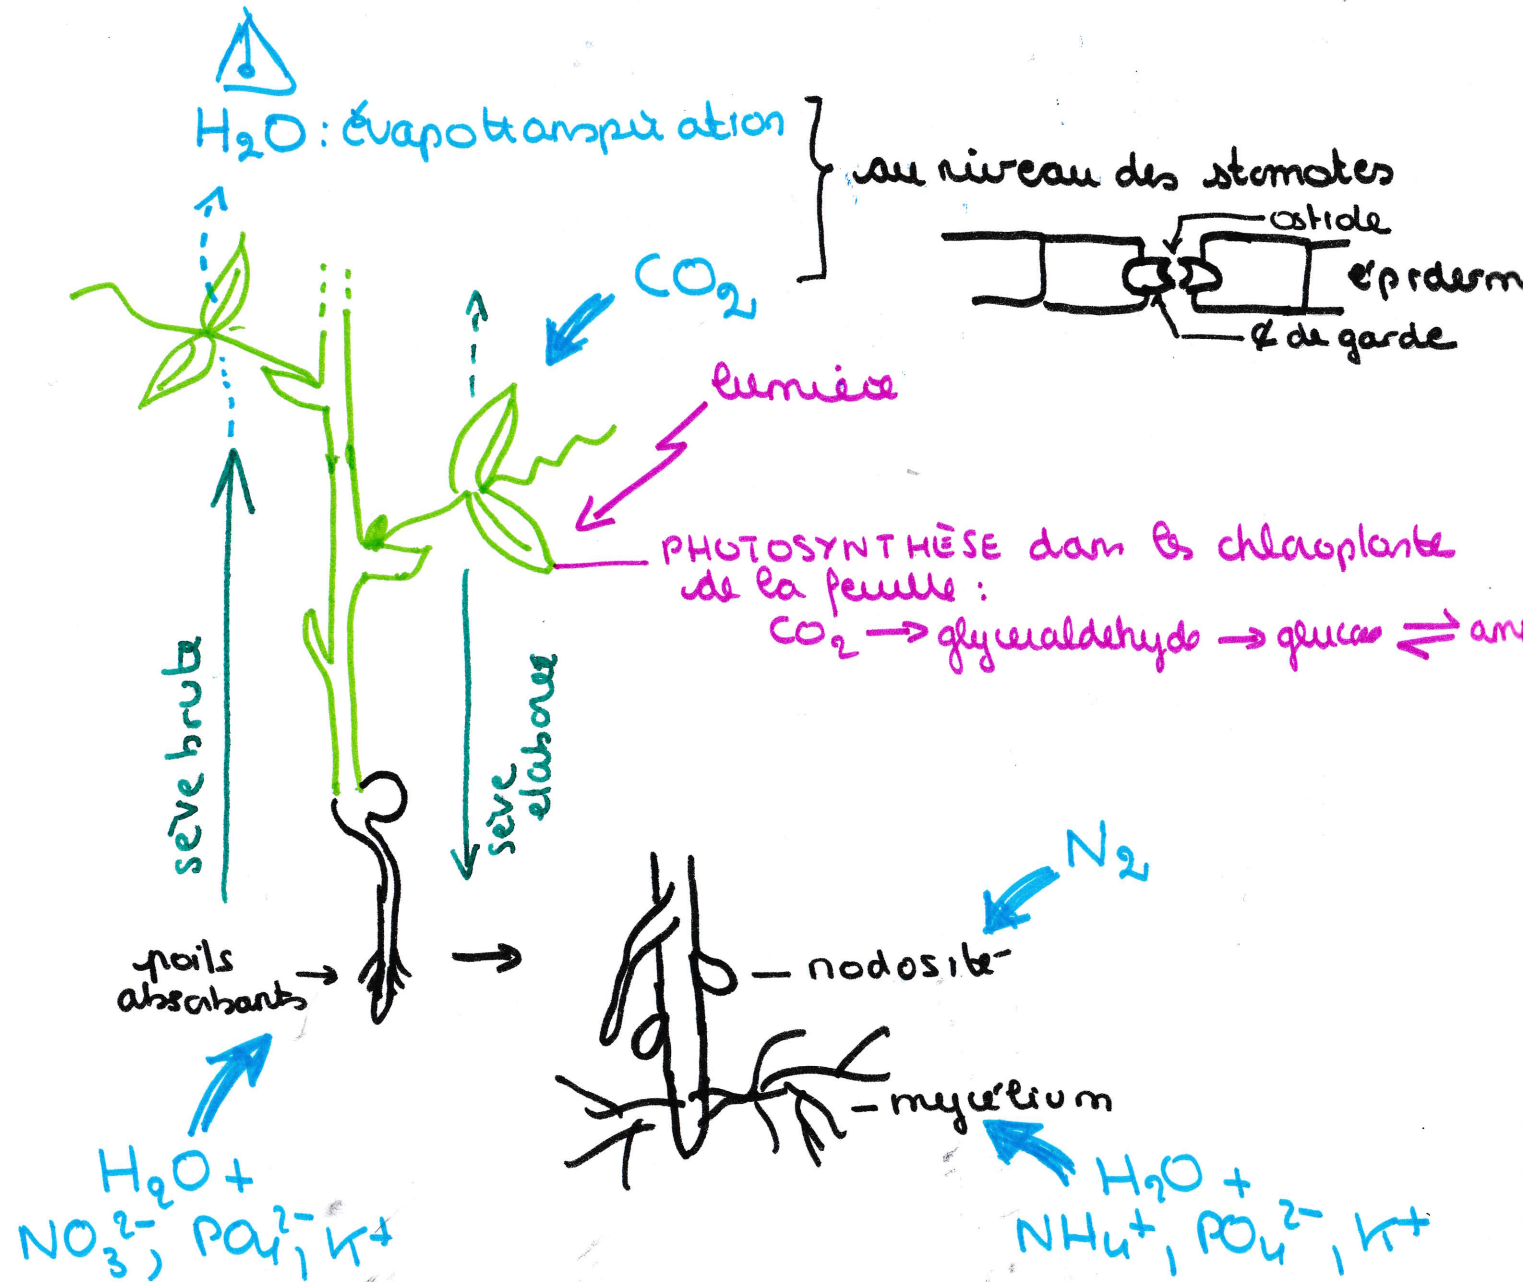 H₂O : évapotranspiration
au niveau des stomates
ostiole
épiderm
¢ de garde
CO₂
lumière
PHOTOSYNTHÈSE dans les chloroplaste
de la feuille :
CO₂ → glyceraldehyde → glucose ⇌ am
sève brute
sève
elaboree
N₂
poils
absorbants →
nodosité
mycélium
H₂O +
NO₃²⁻, PO₄²⁻, K⁺
H₂O +
NH₄⁺, PO₄²⁻, K⁺